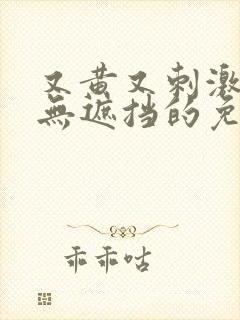 又黄又刺激
無遮挡的免
乖乖咕